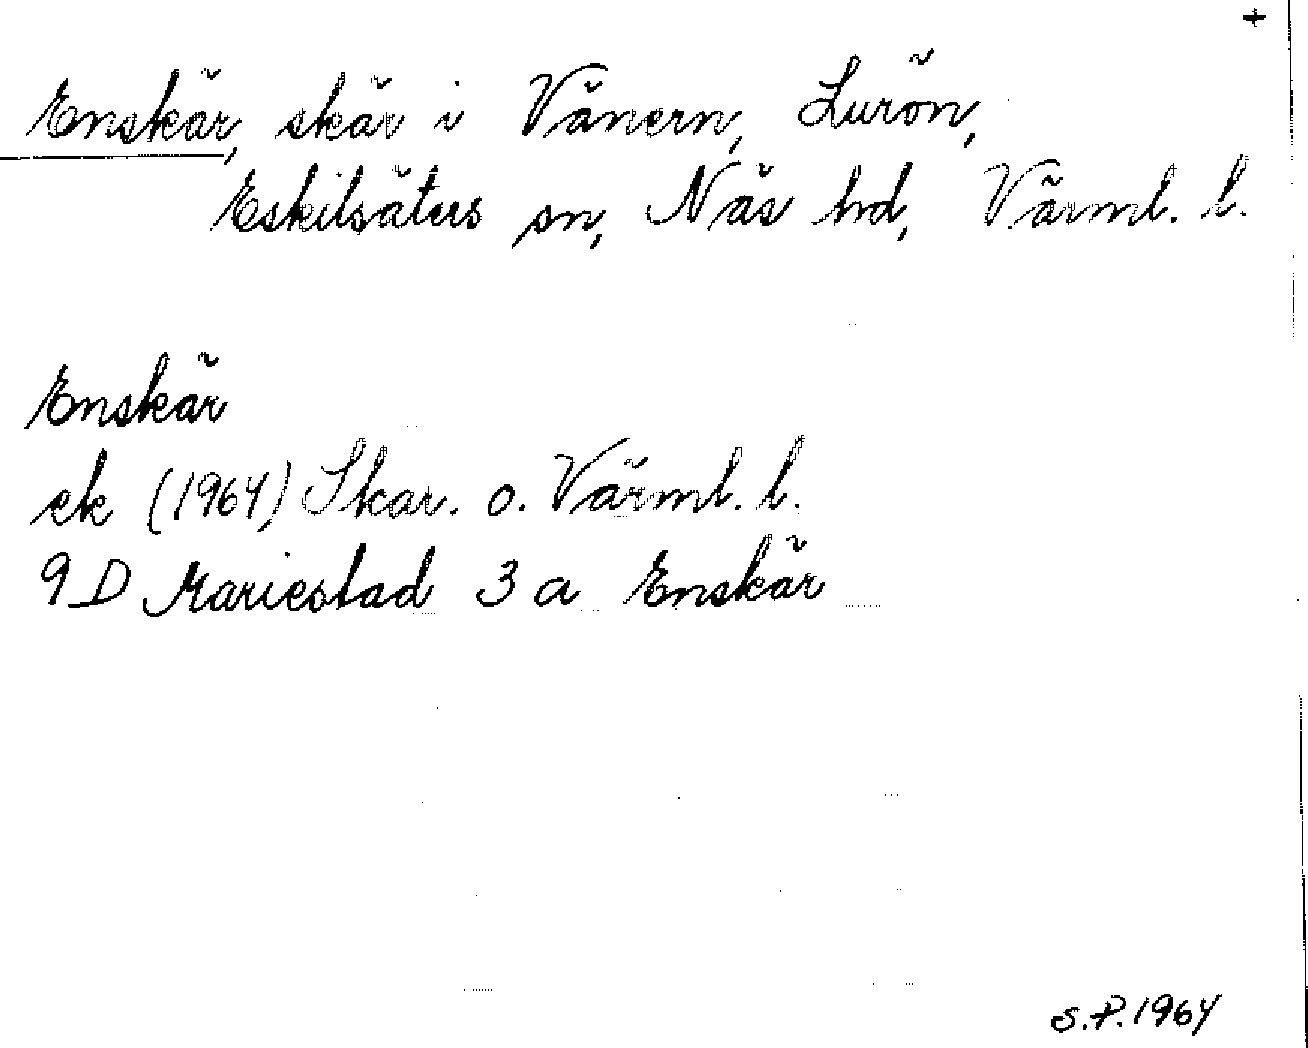 +
Enskär, skär i Vänern, Lurön,
Eskilsäters sn, Näs hd, Värml. l.
Enskär
ek (1964) Skar. o. Värml. l.
9D Mariestad 3 a Enskär
S.P. 1964